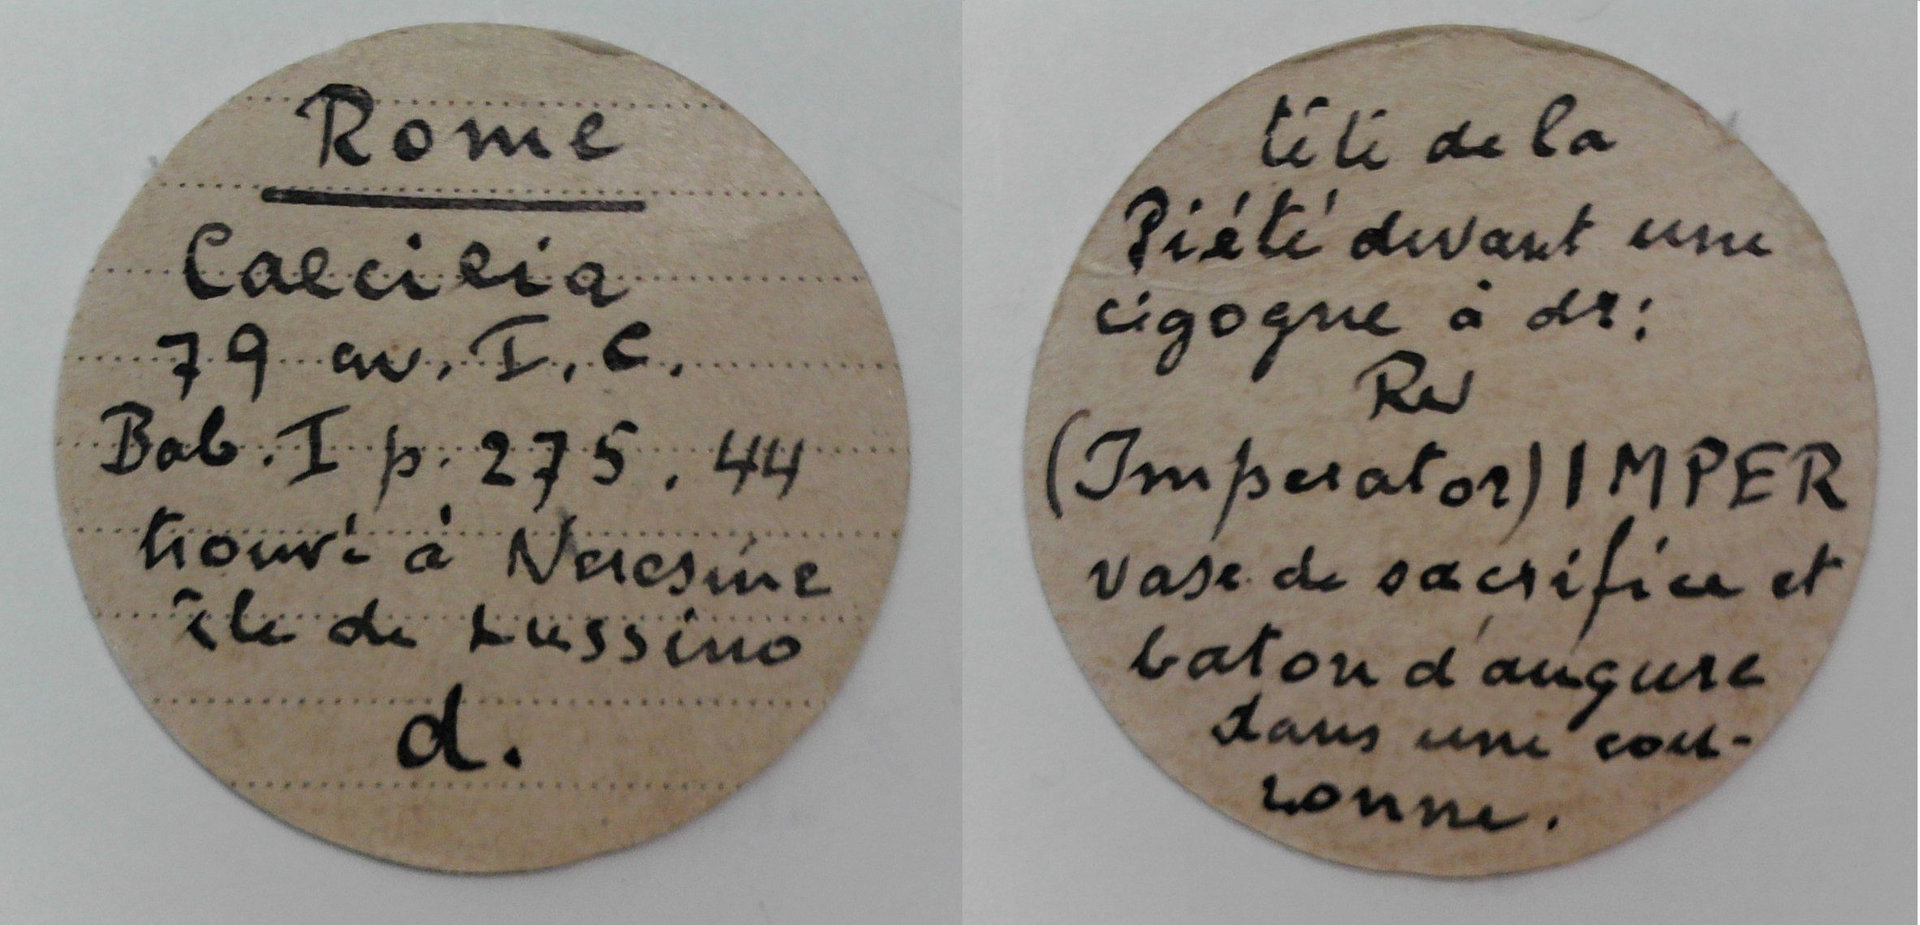 Rome
Caecilia
79 av. I. C.
Bab. I p. 275. 44
trouvé à Neresine
île de Lussino
d.
tête de la
Piété devant une
cigogne à dr:
Rev
(Imperator) IMPER
vase de sacrifice et
baton d'augure
dans une cou-
ronne.